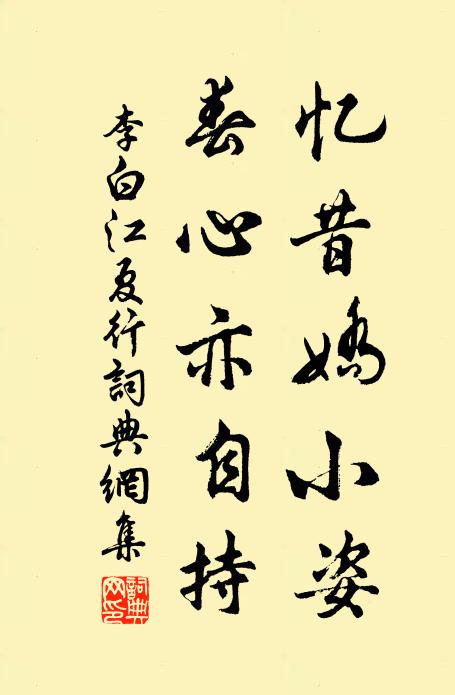 忆昔嬌小姿
春心亦自持
李白江夏行詞典網集
詞典网印